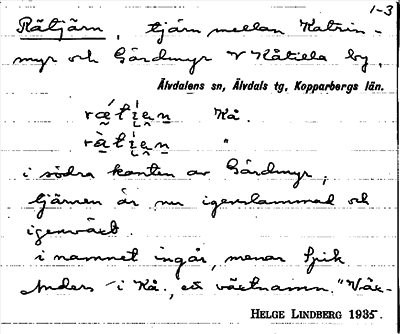 1-3
Rätjärn, tjärn mellan Katrin-
myr och Gårdmyr V Kåtilla by,
Älvdalens sn, Älvdals tg, Kopparbergs län.
Kå.
"
i södra kanten av Gårdmyr,
tjärnen är nu igenslammad och
igenväxt.
i namnet ingår, menar Spik
Anders i Kå., ett växtnamn. "Väx-
HELGE LINDBERG 1935.